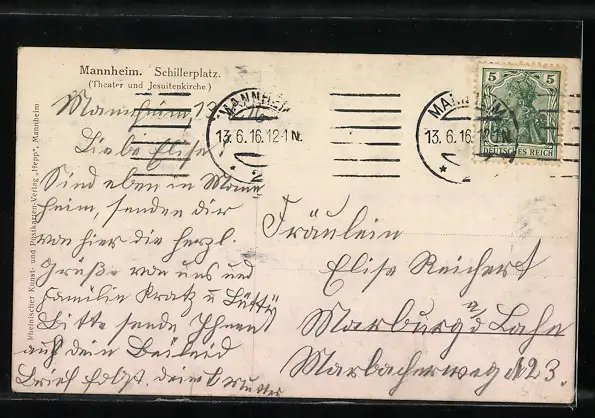 Mannheim. Schillerplatz.
(Theater und Jesuitenkirche)
Rheinischer Kunst- und Postkarten-Verlag „Hepp“, Mannheim
MANNHEIM
13.6.16.12-1N.
* 2
MANNHEIM
13.6.16.12-1N.
* 2
5 5
DEUTSCHES REICH
Mannheim 16
Liebe Elise
Sind eben in Mann
heim, senden dir
von hier die herzl.
Grüße von uns und
Familie Kratz u
Bitte sende Ihnen
auch dein Beileid
Brief folgt. deine Mutter
Fräulein
Elise Reichert
Marburg a/d Lahn
Marbacherweg № 23.